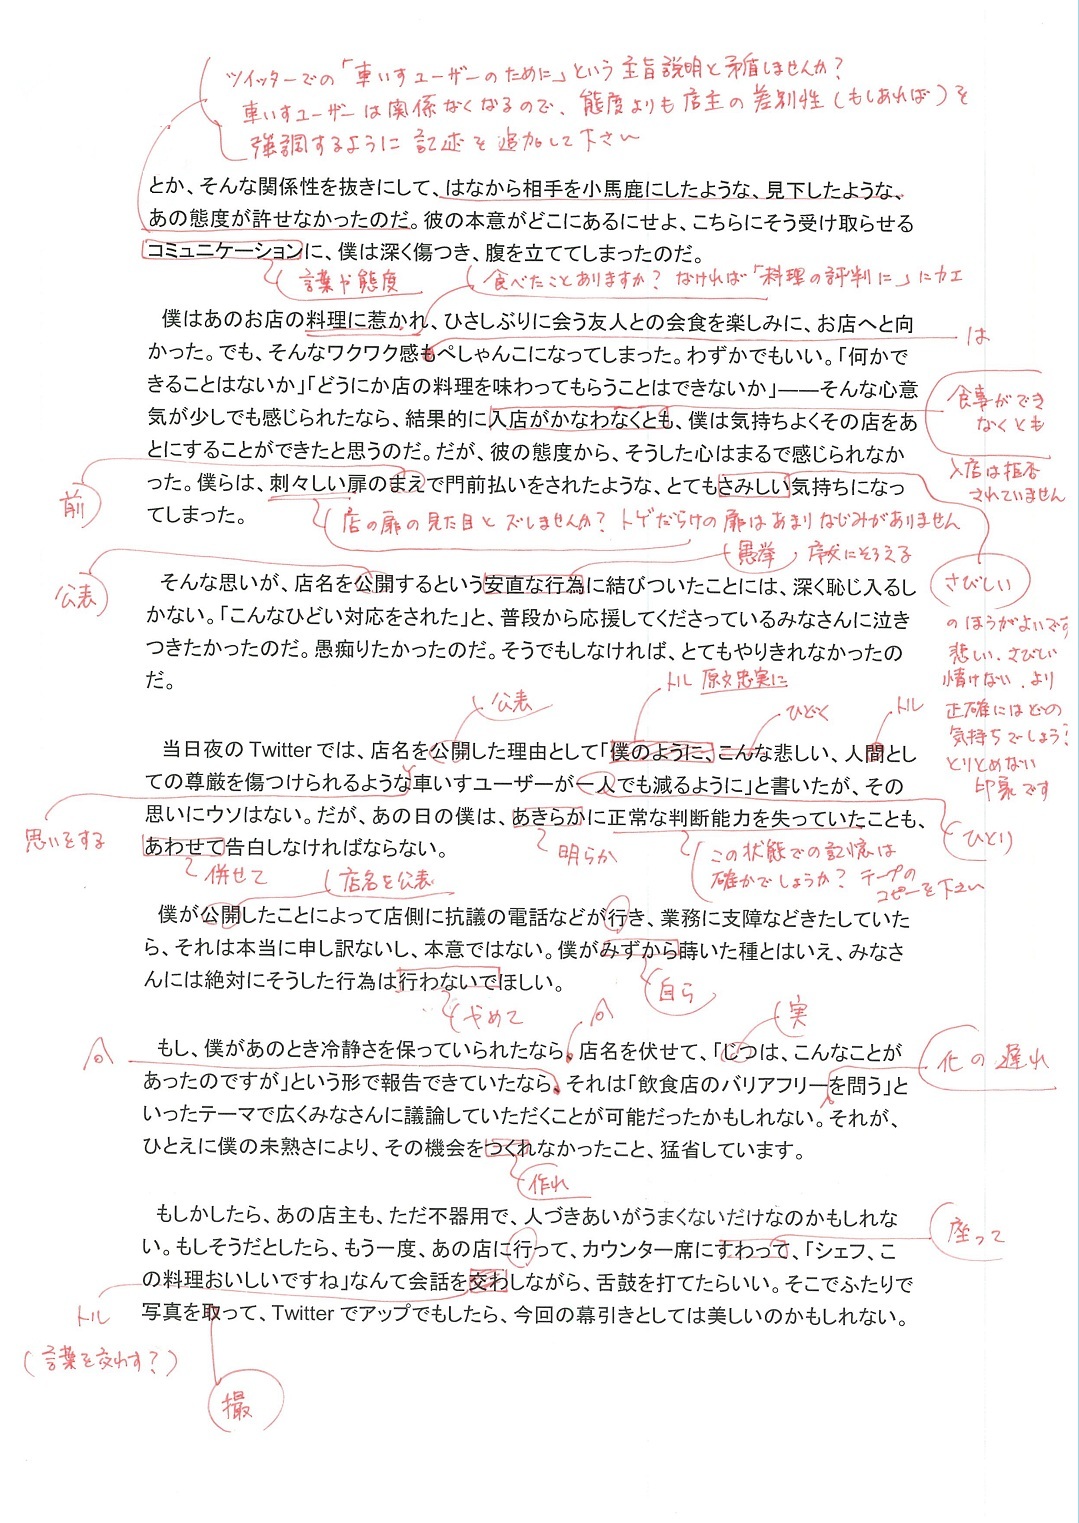 ツイッターでの「車いすユーザーのために」という主旨説明と矛盾しませんか?
車いすユーザーは関係なくなるので、態度よりも店主の差別性(もしあれば)を
強調するように記述を追加して下さい
とか、そんな関係性を抜きにして、はなから相手を小馬鹿にしたような、見下したような、
あの態度が許せなかったのだ。彼の本意がどこにあるにせよ、こちらにそう受け取らせる
コミュニケーションに、僕は深く傷つき、腹を立ててしまったのだ。
言葉や態度
食べたことありますか? なければ「料理の評判に」にカエ
僕はあのお店の料理に惹かれ、ひさしぶりに会う友人との会食を楽しみに、お店へと向
かった。でも、そんなワクワク感もぺしゃんこになってしまった。わずかでもいい。「何かで
は
きることはないか」「どうにか店の料理を味わってもらうことはできないか」――そんな心意
気が少しでも感じられたなら、結果的に入店がかなわなくとも、僕は気持ちよくその店をあ
食事ができ
なくとも
とにすることができたと思うのだ。だが、彼の態度から、そうした心はまるで感じられなか
入店は拒否
されていません
った。僕らは、刺々しい扉のまえで門前払いをされたような、とてもさみしい気持ちになっ
前
てしまった。
店の扉の見た目とズレませんか? トゲだらけの扉はあまりなじみがありません
愚挙、序文にそろえる
そんな思いが、店名を公開するという安直な行為に結びついたことには、深く恥じ入るし
公表
さびしい
かない。「こんなひどい対応をされた」と、普段から応援してくださっているみなさんに泣き
つきたかったのだ。愚痴りたかったのだ。そうでもしなければ、とてもやりきれなかったの
だ。
のほうがよいです
悲しい、さびしい
情けない、より
正確にはどの
気持ちでしょう?
とりとめない
印象です
トル 原文忠実に
公表
ひどく
トル
当日夜の Twitter では、店名を公開した理由として「僕のように、こんな悲しい、人間とし
ての尊厳を傷つけられるような車いすユーザーが一人でも減るように」と書いたが、その
思いにウソはない。だが、あの日の僕は、あきらかに正常な判断能力を失っていたことも、
思いをする
ひとり
あわせて告白しなければならない。
明らか
この状態での記憶は
確かでしょうか? テープの
コピーを下さい
併せて
店名を公表
僕が公開したことによって店側に抗議の電話などが行き、業務に支障などきたしていた
ら、それは本当に申し訳ないし、本意ではない。僕がみずから蒔いた種とはいえ、みなさ
んには絶対にそうした行為は行わないでほしい。
自ら
やめて
実
もし、僕があのとき冷静さを保っていられたなら。店名を伏せて、「じつは、こんなことが
あったのですが」という形で報告できていたなら。それは「飲食店のバリアフリーを問う」と
化の遅れ
いったテーマで広くみなさんに議論していただくことが可能だったかもしれない。それが、
ひとえに僕の未熟さにより、その機会をつくれなかったこと、猛省しています。
作れ
もしかしたら、あの店主も、ただ不器用で、人づきあいがうまくないだけなのかもしれな
い。もしそうだとしたら、もう一度、あの店に行って、カウンター席にすわって、「シェフ、こ
座って
の料理おいしいですね」なんて会話を交わしながら、舌鼓を打てたらいい。そこでふたりで
写真を取って、Twitter でアップでもしたら、今回の幕引きとしては美しいのかもしれない。
トル
(言葉を交わす?)
撮